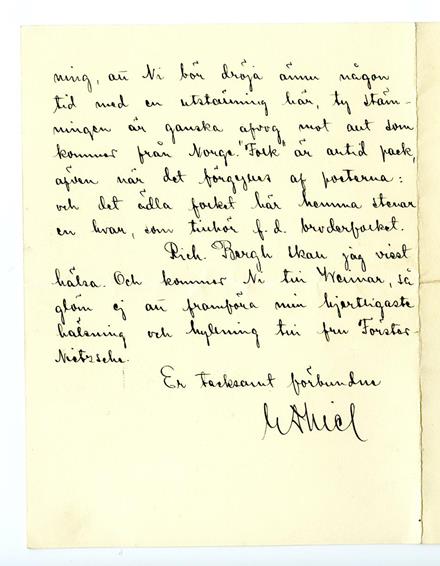 ning, att Ni bör dröja ännu någon
tid med en utställning här, ty stäm-
ningen är ganska afvog mot allt som
kommer från Norge. "Folk" är alltid pack,
äfven när det förgyues af poeterna:
och det ädla folket här hemma stenar
en hvar, som tillhör f. d. broderfolket.
Rich. Bergh skall jag visst
hälsa. Och kommer Ni till Weimar, så
glöm ej att framföra min hjertligaste
hälsning och hyllning till fru Förster-
Nietzsche.
Er tacksamt förbundne